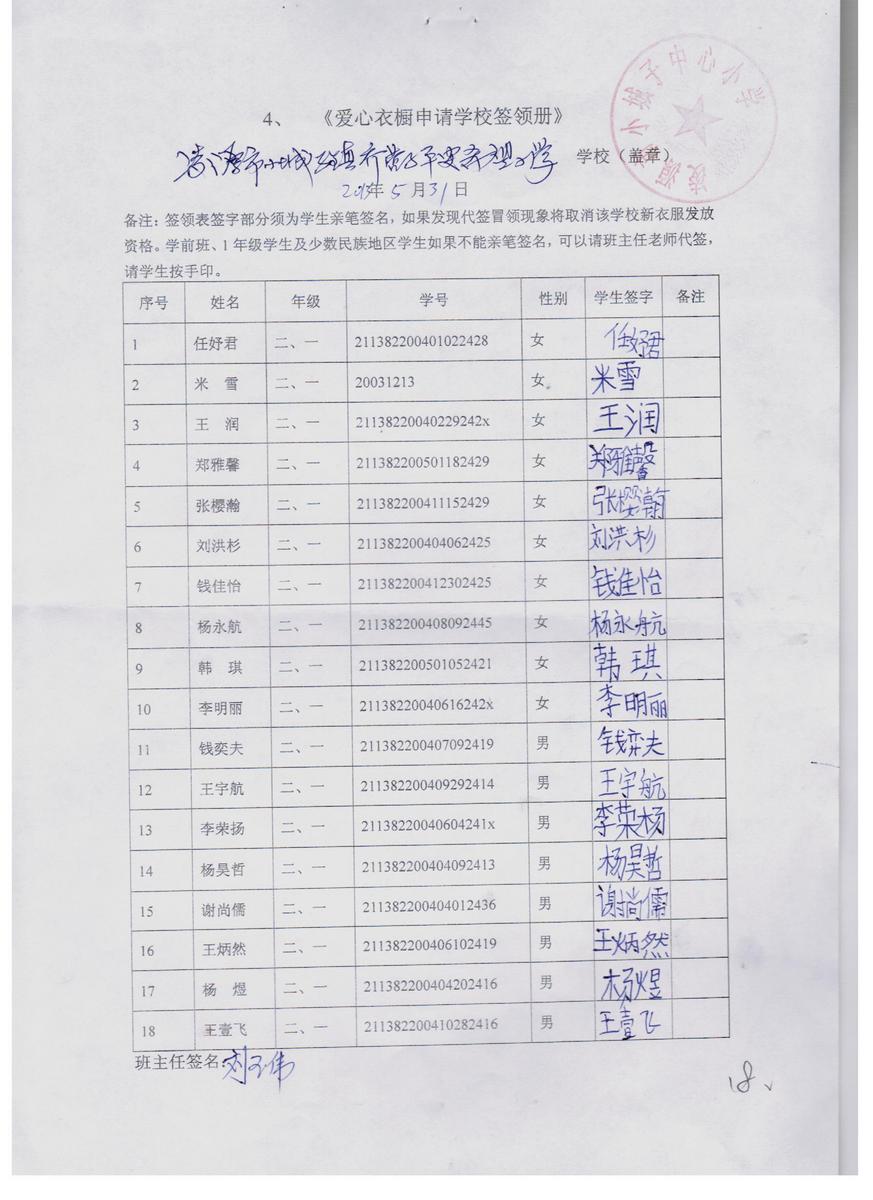 凌源小城子中心小学
4、 《爱心衣橱申请学校签领册》
学校（盖章）
2013年 5 月 31 日
备注：签领表签字部分须为学生亲笔签名，如果发现代签冒领现象将取消该学校新衣服发放
资格。学前班、1 年级学生及少数民族地区学生如果不能亲笔签名，可以请班主任老师代签，
请学生按手印。
序号 姓名 年级 学号 性别 学生签字 备注
1 任妤君 二、一 211382200401022428 女 任妤君
2 米 雪 二、一 20031213 女 米雪
3 王 润 二、一 21138220040229242x 女 王润
4 郑雅馨 二、一 211382200501182429 女 郑雅馨
5 张樱瀚 二、一 211382200411152429 女 张樱瀚
6 刘洪杉 二、一 211382200404062425 女 刘洪杉
7 钱佳怡 二、一 211382200412302425 女 钱佳怡
8 杨永航 二、一 211382200408092445 女 杨永航
9 韩 琪 二、一 211382200501052421 女 韩琪
10 李明丽 二、一 21138220040616242x 女 李明丽
11 钱奕夫 二、一 211382200407092419 男 钱奕夫
12 王宇航 二、一 211382200409292414 男 王宇航
13 李荣扬 二、一 21138220040604241x 男 李荣杨
14 杨昊哲 二、一 211382200404092413 男 杨昊哲
15 谢尚儒 二、一 211382200404012436 男 谢尚儒
16 王炳然 二、一 211382200406102419 男 王炳然
17 杨 煜 二、一 211382200404202416 男 杨煜
18 王壹飞 二、一 211382200410282416 男 王壹飞
班主任签名：刘玉伟
18、